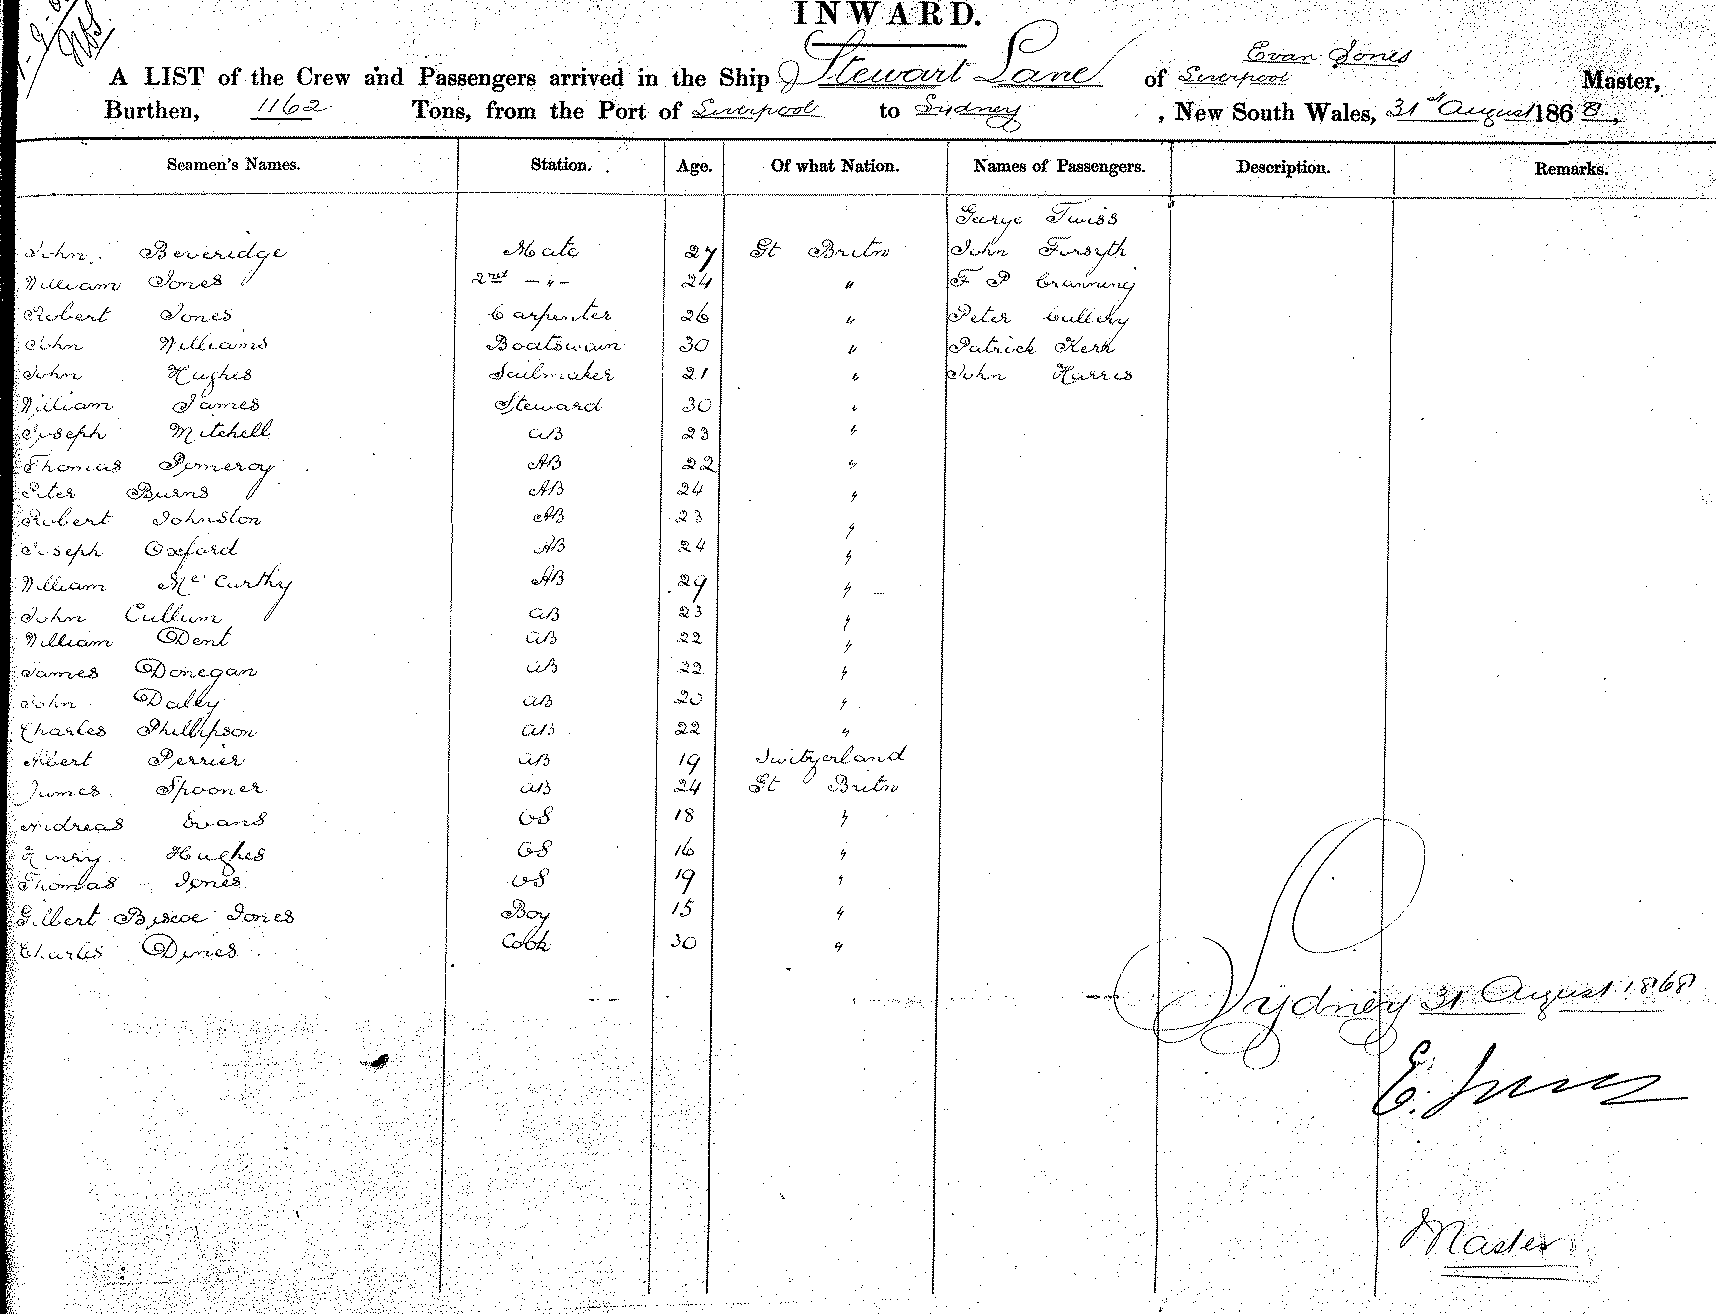 INWARD.
Evan Jones
A LIST of the Crew and Passengers arrived in the Ship Stewart Lane of Liverpool Master,
Burthen, 1162 Tons, from the Port of Liverpool to Sydney , New South Wales, 31st August 1868.
Seamen's Names. Station. Age. Of what Nation. Names of Passengers. Description. Remarks.
Twiss
John Beveridge Mate 27 Gt Britn John Forsyth
William Jones 2nd -"- 24 " F P
Robert Jones Carpenter 26 " Peter Cullery
John Williams Boatswain 30 " Patrick Kerr
John Hughes Sailmaker 21 " John Harris
William James Steward 30 "
Joseph Mitchell AB 23 "
Thomas Pomeroy AB 22 "
Peter Burns AB 24 "
Robert Johnston AB 23 "
Joseph Oxford AB 24 "
William McCurthy AB 29 "
John Cullum AB 23 "
William Dent AB 22 "
James Donegan AB 22 "
John Daley AB 20 "
Charles Phillipson AB 22 "
Albert Perrier AB 19 Switzerland
James Spooner AB 24 Gt Britn
Andreas Evans OS 18 "
Henry Hughes OS 16 "
Thomas Jones OS 19 "
Gilbert Biscoe Jones Boy 15 "
Charles Dines Cook 30 "
Sydney 31 August 1868
E. Jones
Master